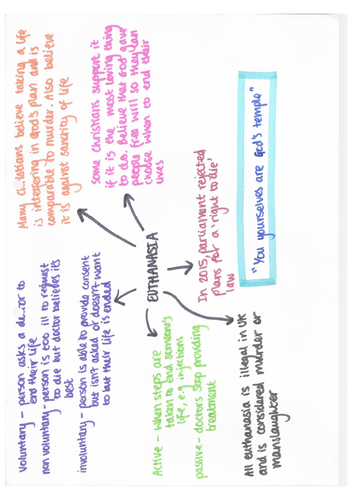 voluntary - person asks a to
end their life
non voluntary - person is too ill to request
to die but doctor believes it's
best
involuntary - person is able to provide consent
but isn't asked or doesn't want
to but their life is ended
Many believe taking a life
is interfering in God's plan and is
comparable to murder. Also believe
it is against sanctity of life
some christians support it
if it is the most loving thing
to do. Believe that God gave
people free will so they can
choose when to end their
lives
EUTHANASIA
Active - when steps are
taken to end someone's
life, e.g injections
passive - doctors stop providing
treatment
In 2015, parliament rejected
plans for a 'right to die'
law
All euthanasia is illegal in UK
and is considered murder or
manslaughter
"You yourselves are God's temple"